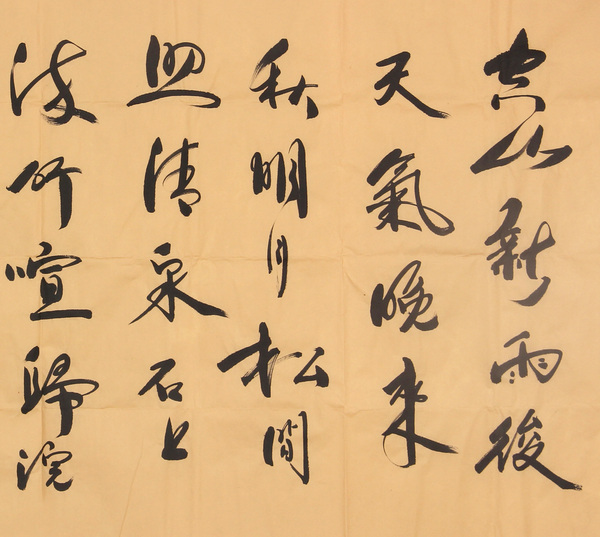 空山新雨後
天氣晚來
秋明月松間
照清泉石上
流竹喧歸浣